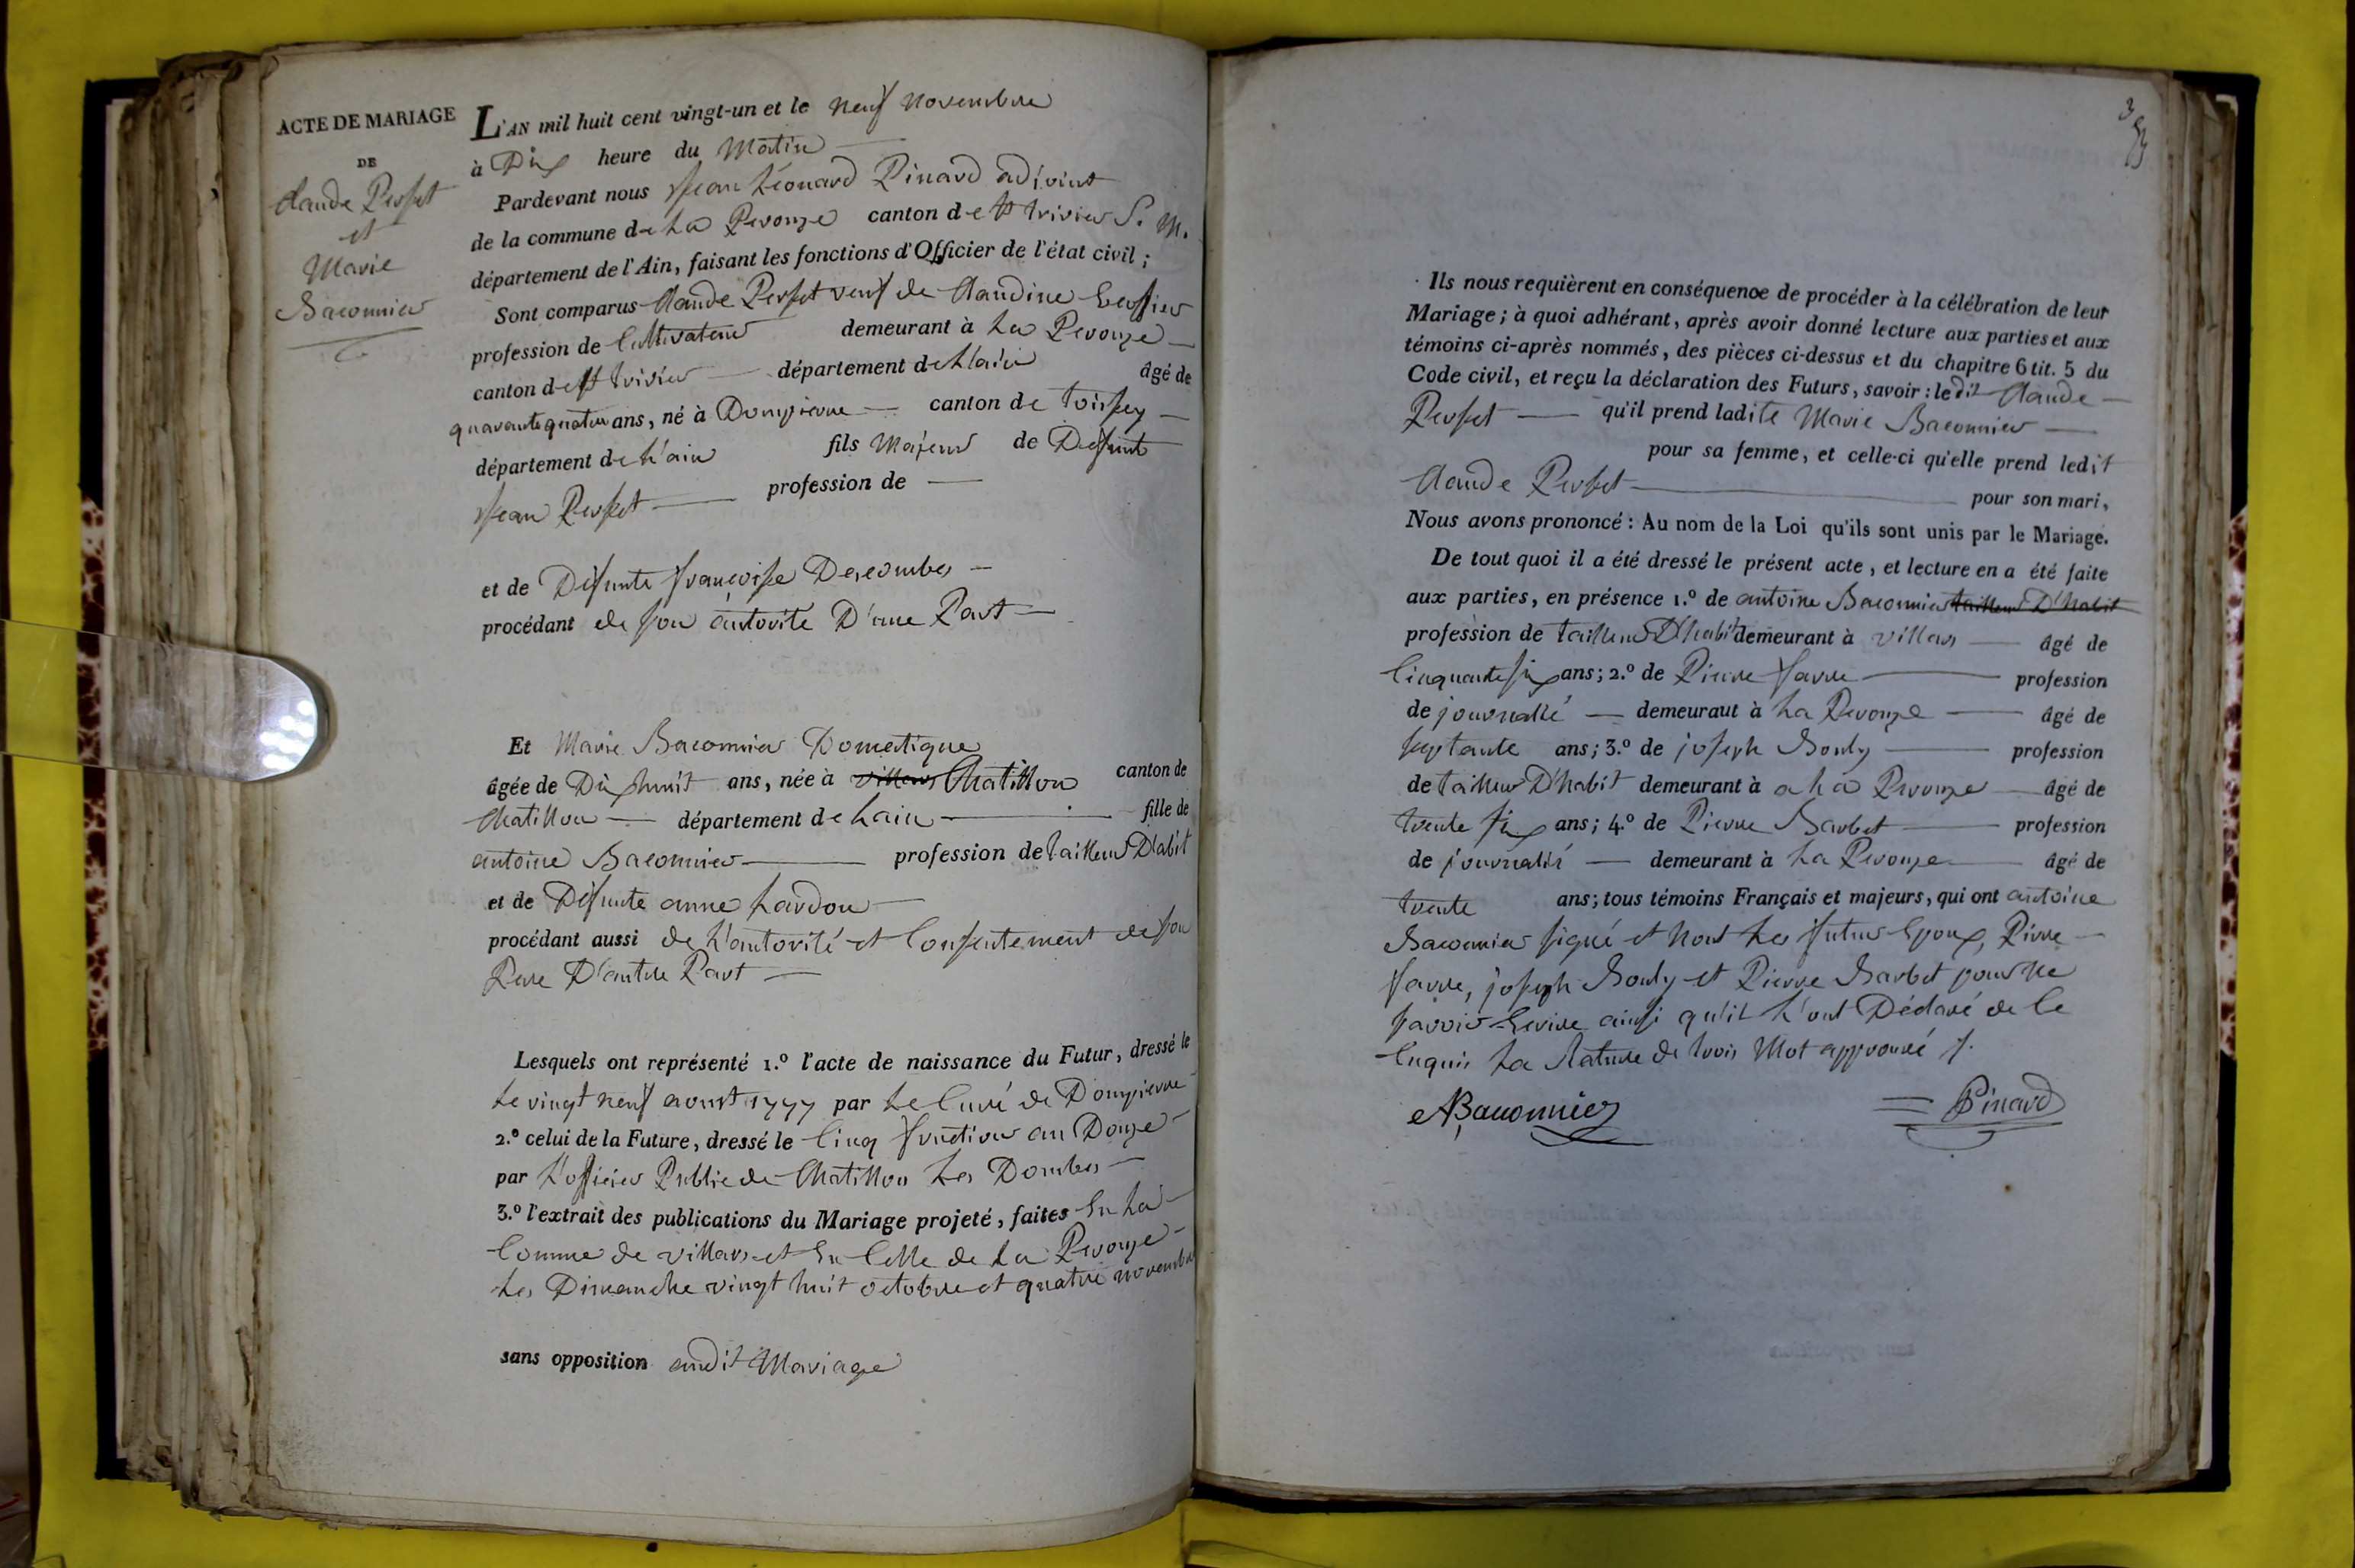 ACTE DE MARIAGE
DE
Claude Perset
et
Marie
Baconnier
L'AN mil huit cent vingt-un et le neuf novembre
à Dix heure du Matin
Pardevant nous Jean Léonard Pinard adjoint
de la commune de La Perouze canton de St trivier S. M.
département de l'Ain, faisant les fonctions d'Officier de l'état civil;
Sont comparus Claude Perset veuf de Claudine
profession de Cultivateur demeurant à La Perouze
canton de St trivier département de L'ain âgé de
quarante quatre ans, né à Dompierre canton de toissey
département de L'ain fils Majeur de Defunt
Jean Perset profession de
et de Défunte françoise Descombes
procédant de son autorité D'une Part
Et Marie Baconnier Domestique
âgée de Dix huit ans, née à villars Chatillon canton de
Chatillon département de Lain fille de
antoine Baconnier profession de tailleur D'abit
et de Défunte anne Lardon
procédant aussi de L'autorité et Consentement de son
Pere D'autre Part
Lesquels ont représenté 1.º l'acte de naissance du Futur, dressé le
Le vingt neuf aoust 1777 par Le Curé de Dompierre
2.º celui de la Future, dressé le Cinq fructidor an Douze
par L'officier Public de Chatillon Les Dombes
3.º l'extrait des publications du Mariage projeté, faites En La
Comune de villars et En Celle de La Perouze
Les Dimanche vingt huit octobre et quatre novembre
sans opposition audit Mariage
Ils nous requièrent en conséquence de procéder à la célébration de leur
Mariage; à quoi adhérant, après avoir donné lecture aux parties et aux
témoins ci-après nommés, des pièces ci-dessus et du chapitre 6 tit. 5 du
Code civil, et reçu la déclaration des Futurs, savoir: ledit Claude
Perset qu'il prend ladite Marie Baconnier
pour sa femme, et celle-ci qu'elle prend ledit
Claude Perset pour son mari,
Nous avons prononcé: Au nom de la Loi qu'ils sont unis par le Mariage.
De tout quoi il a été dressé le présent acte, et lecture en a été faite
aux parties, en présence 1.º de antoine Baconnier tailleur D'habit
profession de tailleur D'habit demeurant à villars âgé de
Cinquante six ans; 2.º de Pierre favre profession
de journallié demeurant à La Perouze âgé de
septante ans; 3.º de joseph Bouly profession
de tailleur D'habit demeurant à a La Perouze âgé de
trente six ans; 4.º de Pierre Barbet profession
de journalié demeurant à La Perouze âgé de
trente ans; tous témoins Français et majeurs, qui ont antoine
Baconnier signé et Nont Les futur Epoux, Pierre
favre, joseph Bouly et Pierre Barbet pour ne
savoir Ecrire ainsi qu'il L'ont Déclaré de Ce
Enquis La Rature de trois Mot approuvé
ABaconnier
Pinard